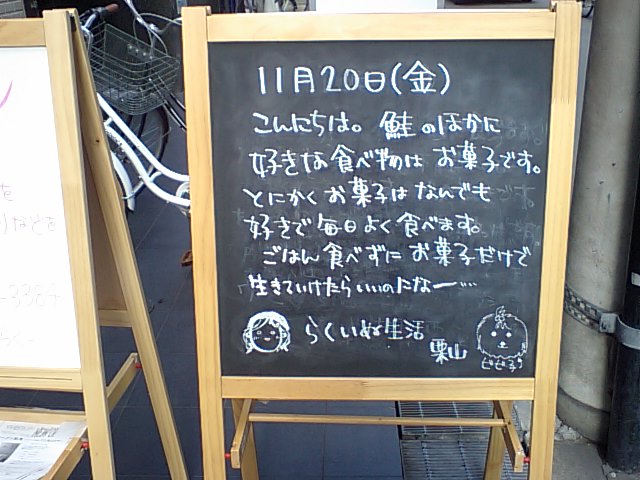 11月20日(金)
こんにちは。 鮭のほかに
好きな食べ物は お菓子です。
とにかくお菓子は なんでも
好きで毎日よく食べます。
ごはん食べずに お菓子だけで
生きていけたらいいのになー…
らくいぬ生活
栗山